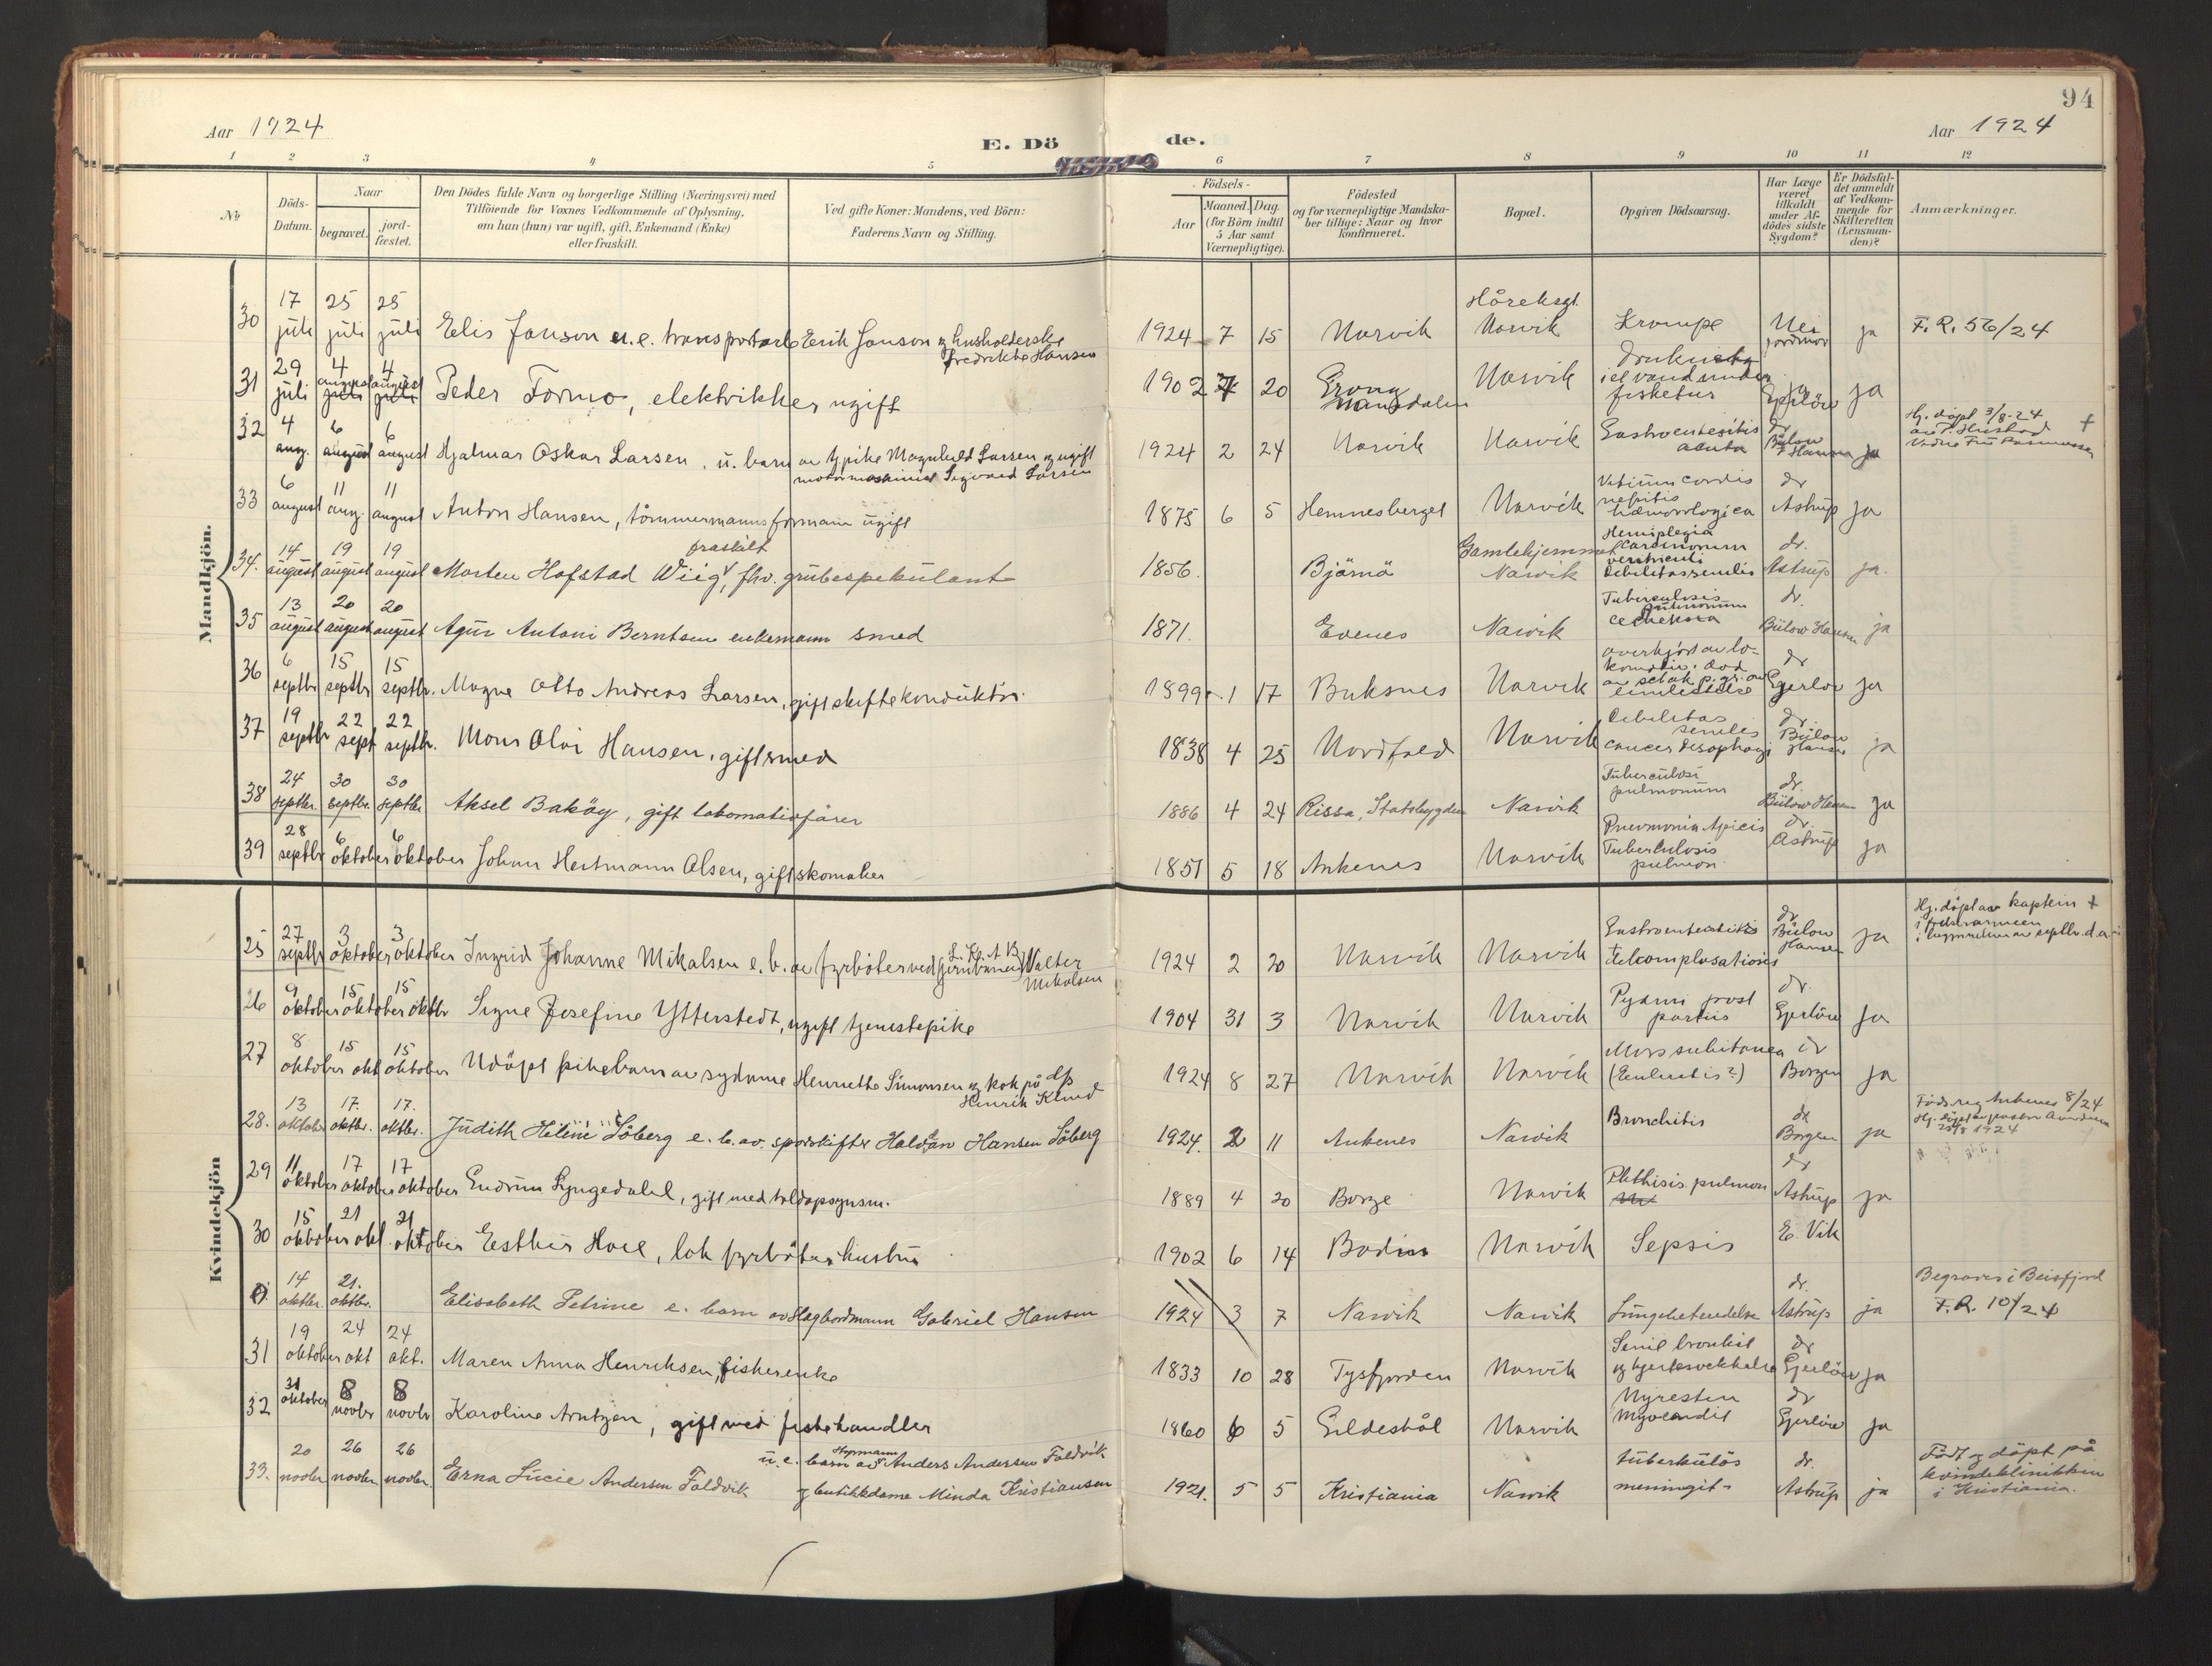 94
Aar 1924
E. Dö de.
Aar 1924
1 2 3 4 5 6 7 8 9 10 11 12
No
Döds-Datum.
Naar
begravet.
jord-fæstet.
Den Dödes fulde Navn og borgerlige Stilling (Næringsvei) med
Tilföiende for Voxnes Vedkommende af Oplysning,
om han (hun) var ugift, gift, Enkemand (Enke)
eller fraskilt.
Ved gifte Koner: Mandens, ved Börn:
Faderens Navn og Stilling.
Födsels-
Aar
Maaned. Dag.
(for Börn indtil
5 Aar samt
Værnepligtige).
Födested
og for værnepligtige Mandska-
ber tillige: Naar og hvor
konfirmeret.
Bopæl.
Opgiven Dödsaarsag.
Har Læge
været
tilkaldt
under Af-
dödes sidste
Sygdom?
Er Dödsfal-
det anmeldt
af Vedkom-
mende for
Skifteretten
(Lensman-
den)?
Anmærkninger.
Mandkjön.
30 17 juli 25 juli 25 juli Elis Janson u.e. transportarb. Erik Janson og husholderske Fredrikke Hansen 1924 7 15 Narvik Håreksgt. Narvik Krampe Nei jordmor ja F. R. 56/24
31 29 juli 4 august 4 august Peder Formo, elektrikker ugift 1902 7 20 Grong Namsdalen Narvik i elvand under fisketur ja Gjerlöw ja
32 4 aug. 6 august 6 august Hjalmar Oskar Larsen, u. barn av pike Magnhild Larsen og ugift motormaskinist Sigvard Larsen 1924 2 24 Narvik Narvik Gastroenteritis acuta dr Bülow Hansen ja Hj. döpt 3/8-24
33 6 august 11 aug. 11 august Anton Hansen, tömmermannsformann ugift 1875 6 5 Hemnesberget Narvik Vitium cordis nefritis hæmorrologica dr Astrup ja
34. 14 august 19 august 19 august Morten Hofstad Wiig, fraskilt fhv. grubespekulant 1856. Bjärnä Gamlehjemmet Narvik Hemiplegia carcinonum ventriculi Debilitas senilis dr. Astrup ja.
35 13 august 20 august 20 august Agur Antoni Berntsen enkemann smed 1871. Evenes Narvik Tuberculosis pulmonum dr. Bülow Hansen ja
36 6 septbr 15 septbr 15 septbr. Magne Otto Andreas Larsen, gift skiftekonduktör. 1899 1 17 Buksnes Narvik overkjört av lo-komotiv. död dr Gjerlöw ja
37 19 septbr 22 sept 22 septbr. Mons Olai Hansen, gift smed 1838 4 25 Nordfold Narvik Debilitas senilis cancer dr. Bülow Hansen ja
38 24 septbr. 30 septbr. 30 septbr Aksel Baköy, gift lokomotivfører 1886 4 24 Rissa, Statsbygden Narvik Tuberculosi pulmonum dr. Bülow Hansen ja
39 28 septbr 6 oktober 6 oktober Johan Hertmann Olsen, gift skomaker 1851 5 18 Ankenes Narvik Pneumonia Apicis Tuberculosis pulmon dr. Astrup ja
Kvindekjön
25 27 septbr 3 oktober 3 oktober Ingrid Johanne Mikalsen e. b. av fyrböter ved jernbanen Walter Mikalsen 1924 2 20 Narvik Narvik dr Bülow Hansen ja Hj. döpt av kaptein i frelsesarmeen
26 9 oktober 15 oktober 15 oktbr Signe Josefine Ytterstedt, ugift tjenestepike 1904 31 3 Narvik Narvik Pyämi post partus dr. Gjerlöw ja
27 8 oktober 15 okt 15 oktober Udöpt pikebarn av sydame Henriette Simonsen og kok på d/s Henrik Klund 1924 8 27 Narvik Narvik Mors subitanea dr Borgen ja
28. 13 oktober 17. oktbr. 17. oktbr. Judith Heléne Söberg e. b. av sporskifter Haldan Hansen Söberg 1924. 2 11 Ankenes Narvik Bronchitis dr Borgen ja Föds. reg Ankenes 8/24
29 11 oktober 17 oktober 17 oktober Gudrun Lyngedahl, gift med toldopsynsm. 1889 4 20 Borge Narvik Phthisis pulmon dr Astrup ja
30 15 oktober 21 okt. 21 oktober Esther Hoel, lok fyrböters hustru 1902 6 14 Bodin Narvik Sepsis E. Vik
0. 14 oktbr. 21. oktbr. Elisabeth Petrine e. barn av slagbordmann Gabriel Hansen 1924 3 7 Narvik Narvik Lungebetendelse dr. Astrup ja Begraves i Beisfjord F. R. 10/24
31 19 oktober 24 okt 24 okt. Maren Anna Henriksen, fiskerenke 1833 10 28 Tysfjorden Narvik Senil bronkit og hjertesvekkelse dr Gjerlöw ja
32 31 oktober 8 novbr 8 novbr Karoline Arntzen, gift med fiskehandler 1860 6 5 Gildeskål Narvik Nyresten Myocardit dr Gjerlöw ja
33. 20 novbr 26 novbr 26 novbr Erna Lucie Andersen Foldvik u. e. barn av Anders Andersen Foldvik og butikkdame Minda Kristiansen 1921. 5 5 Kristiania Narvik tuberkulös meningit dr. Astrup ja Födt og döpt på kvindeklinikken i Kristiania.